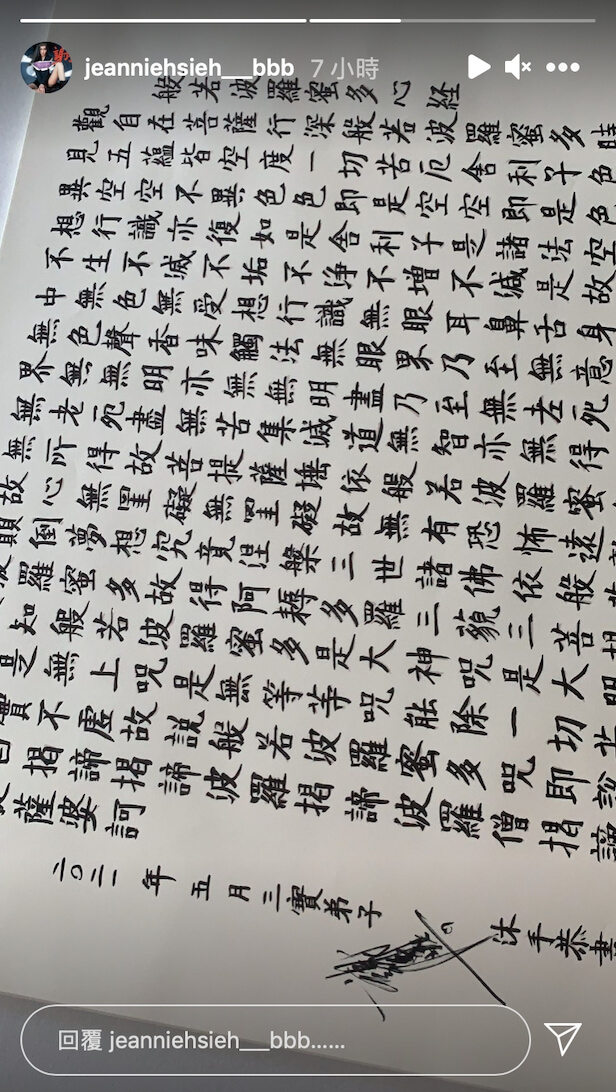 jeanniehsieh___bbb 7 小時
般若波羅蜜多心経
觀自在菩薩行深般若波羅蜜多時
見五蘊皆空度一切苦厄舍利子色
異空空不異色色即是空空即是色
想行識亦復如是舍利子是諸法空
不生不滅不垢不淨不增不減是故
中無色無受想行識無眼耳鼻舌身
無色聲香味觸法無眼界乃至無意
界無無明亦無無明盡乃至無老死
無老死盡無苦集滅道無智亦無得
無所得故菩提薩埵依般若波羅蜜
故心無罣礙無罣礙故無有恐怖遠
顛倒夢想究竟涅槃三世諸佛依般
羅蜜多故得阿耨多羅三藐三菩
知般若波羅蜜多是大神咒是大
是無上咒是無等等咒能除一切
實不虛故說般若波羅蜜多咒即
揭諦揭諦波羅揭諦波羅僧揭諦
薩婆訶
二〇二一年五月三寶弟子
沐手恭書
回覆 jeanniehsieh___bbb......